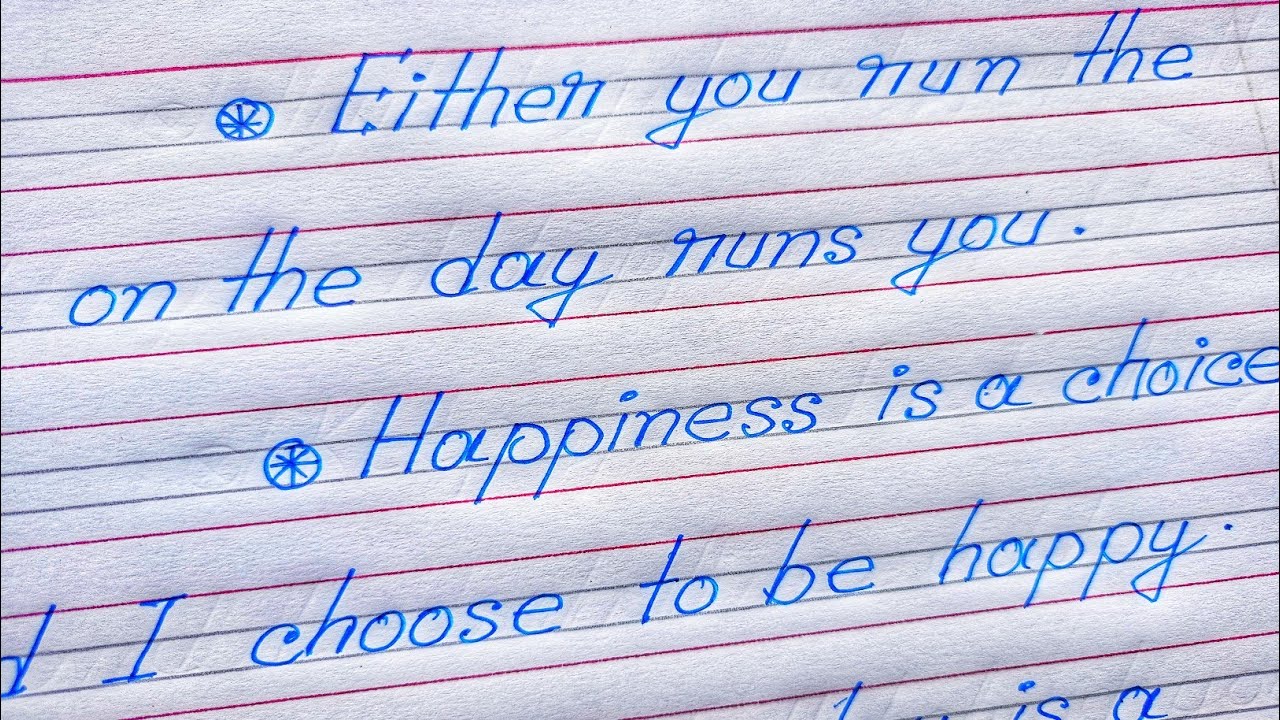 Either you run the
on the day runs you.
Happiness is a choice
d I choose to be happy.
is a